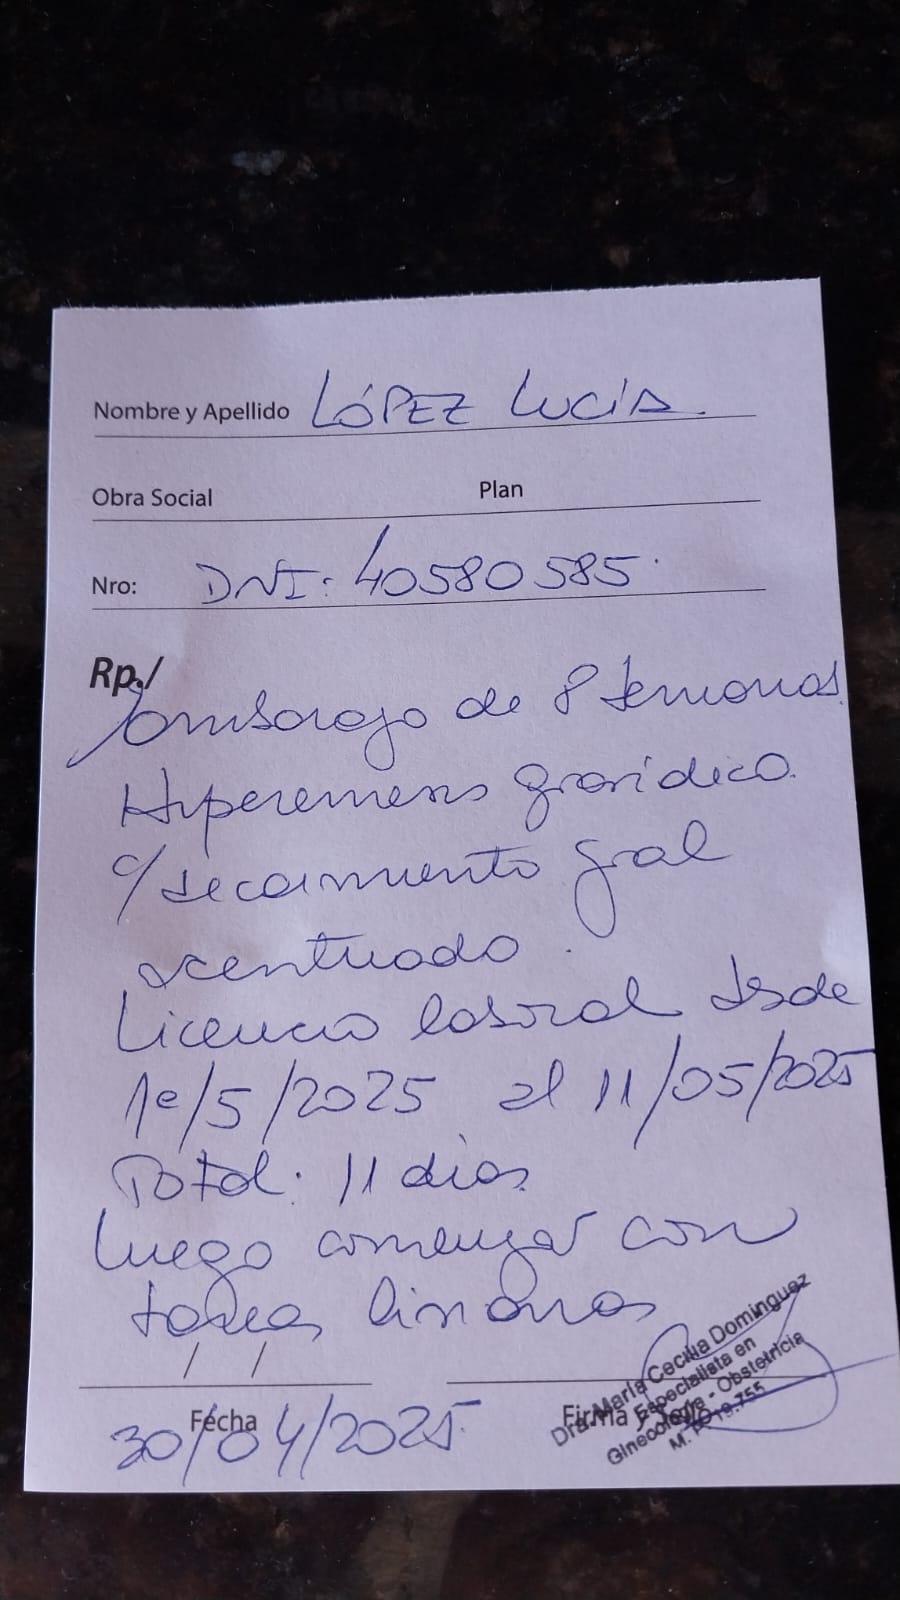 Nombre y Apellido LÓPEZ LUCÍA.
Obra Social Plan
Nro: DNI: 40580585.
Rp./
Embarazo de 8 semanas.
Hiperemesis gravídica.
c/decaimiento gral
acentuado.
Licencia laboral desde
1e/5/2025 al 11/05/2025
Total: 11 días
luego comenzar con
tareas livianas
/ /
Fecha
30/04/2025.
Firma
Dra. María Cecilia Dominguez
Especialista en
Ginecología - Obstetricia
M. P.